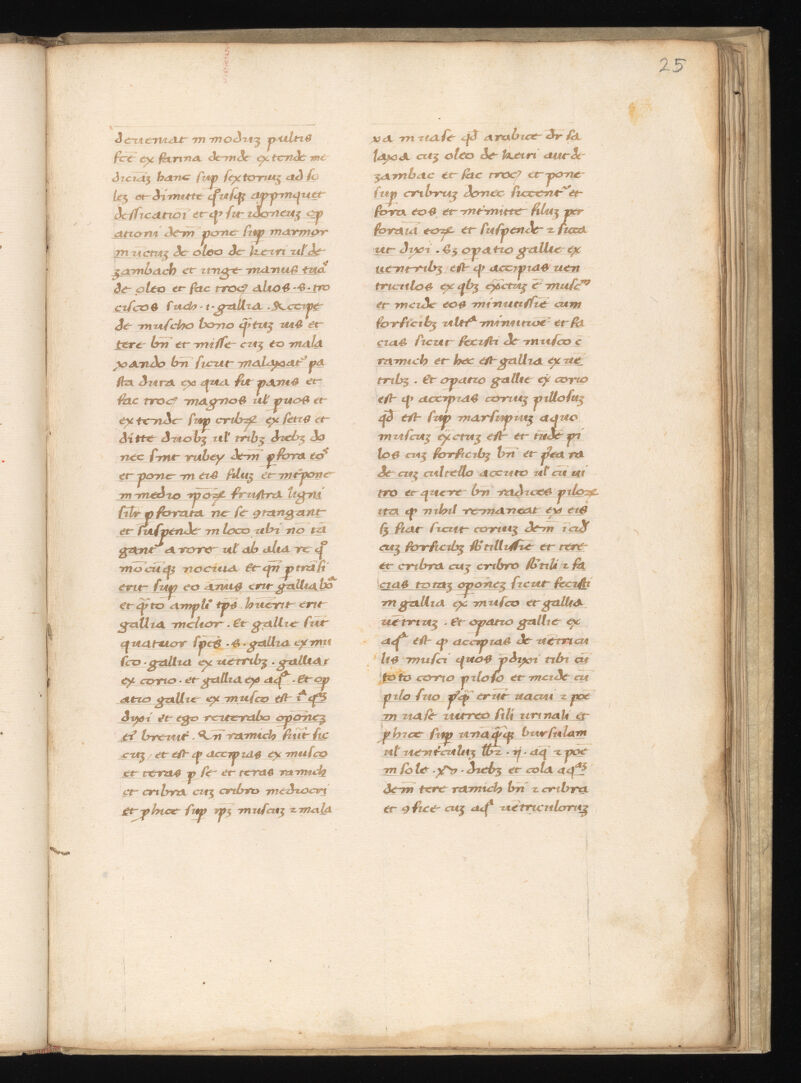 25
deveniat in moduʒ pultis
fc̄e ex farina deinde extende me
diciāʒ hanc sup̱ sextoriuʒ ad so
leʒ et dimitte q̊usqʒ appinquet
dessicatiōi et q̱ sit idoneuʒ op̱
ationi dem̄ pone sup̱ marmor
inuctuʒ de oleo de keiri ul̓ de
zambach et unge manus tuaˢ
de oleo et fac troc̓ alios .s. tro
ciscos such .i. gallia . Accipe
de muscho bono q̄tuʒ uis et
tere bn̄ et misse cuʒ eo mala
xando bn̄ sicut malaxat̓ pa
sta dura ex qua fit panis et
fac troc̓ magnos ul̓ p̱uos et
extende sup̱ cribꝝ ex setis et
ditte duobʒ ul̓ tribʒ diebʒ do
nec sint rubey dem̄ p̱fora eoˢ
et pone in eis filuʒ et int̓pone
in medio ip̄oꝝ frustra ligni
silr̄ p̱forata ne se ꝯtangant
et suspende in loco ubi nō tā
gant̓ a rore ul̓ ab alia re q̊
mōcūqʒ nociua Et qn̄ p̱trāsi
erit sup̱ eo annus erit gallia boᵃ
et q̄to ampli̓ tp̄s huerit erit
gallia melior . Et gallie sūt
quatuor sp̄es .s. gallia ex mu
sco . gallia ex uētribʒ . gallia
ex corio . et gallia ex aqᵃ . Et op̱
atio gallie ex musco est
dixi et ego reiterabo op̱onēʒ
ei̓ breuit̓ . Añ ramich sūt sic
cuʒ . et est q̱ accipias ex musco
et teras p̱ se et teras ramich
et cribra cuʒ cribro mediocri
et p̱hice sup̱ ip̄ʒ muscuʒ ⁊ mala
xa in uase qd̓ arabice dr̄ sa
laxa cuʒ oleo de keiri aut de
zambac et fac troc̓ et pone
sup̱ cribruʒ donec siccent̓ et
fora eos et int̓mitte filuʒ per
foraīa eoꝝ et suspende ⁊ sicca
ut dixi . Sʒ op̱atio gallie ex
uentribʒ est q̱ accipias uen
triculos ex qbʒ ex̄ctus ē muscᵘˢ
et incide eos minutissīe cum
forficibʒ ultīᵃ minutiōe et fa
cias sicut fecisti de musco c̄
ramich et hec est gallia ex uē
tribʒ . Et op̱atio gallie ex corio
est q̱ accipias coriuʒ pillosuʒ
qd̓ est sup̱ marsupiuʒ a quo
muscus ex̄ctus est et tūde pi
los cuʒ forficibʒ bn̄ et p̄ea ra
de cuʒ cultello accuto ul̓ cū ui
tro et quere bn̄ radices piloꝝ
ita q̱ nihil remaneat ex eis
sʒ fiat sicut coriuʒ dem̄ icid̓
cuʒ forficibʒ sb̓tillissīe et tere
et cribra cuʒ cribro sb̓tili ⁊ fa
cias totaʒ op̱onēʒ sicut fecisti
in gallia ex musco et gallia
uētriuʒ . Et op̱atio gallie ex
aqᵃ est q̱ accipias de uētricu
lis musci quos p̄dixi tibi cū
toto corio piloso et incide cū
pilo suo p̄q̱ erūt uacui ⁊ poē
in uase uitreo sīli urinali et
p̱hice sup̱ unāqʒ bursulam
ul̓ uentriculuʒ lbr̄ .ij. aq̄ ⁊ poē
in sole .xv. diebʒ et cola aqᵃʒ
dem̄ tere ramich bn̄ ⁊ cribra
et ꝯfice cuʒ aqᵃ uētriculoruʒ